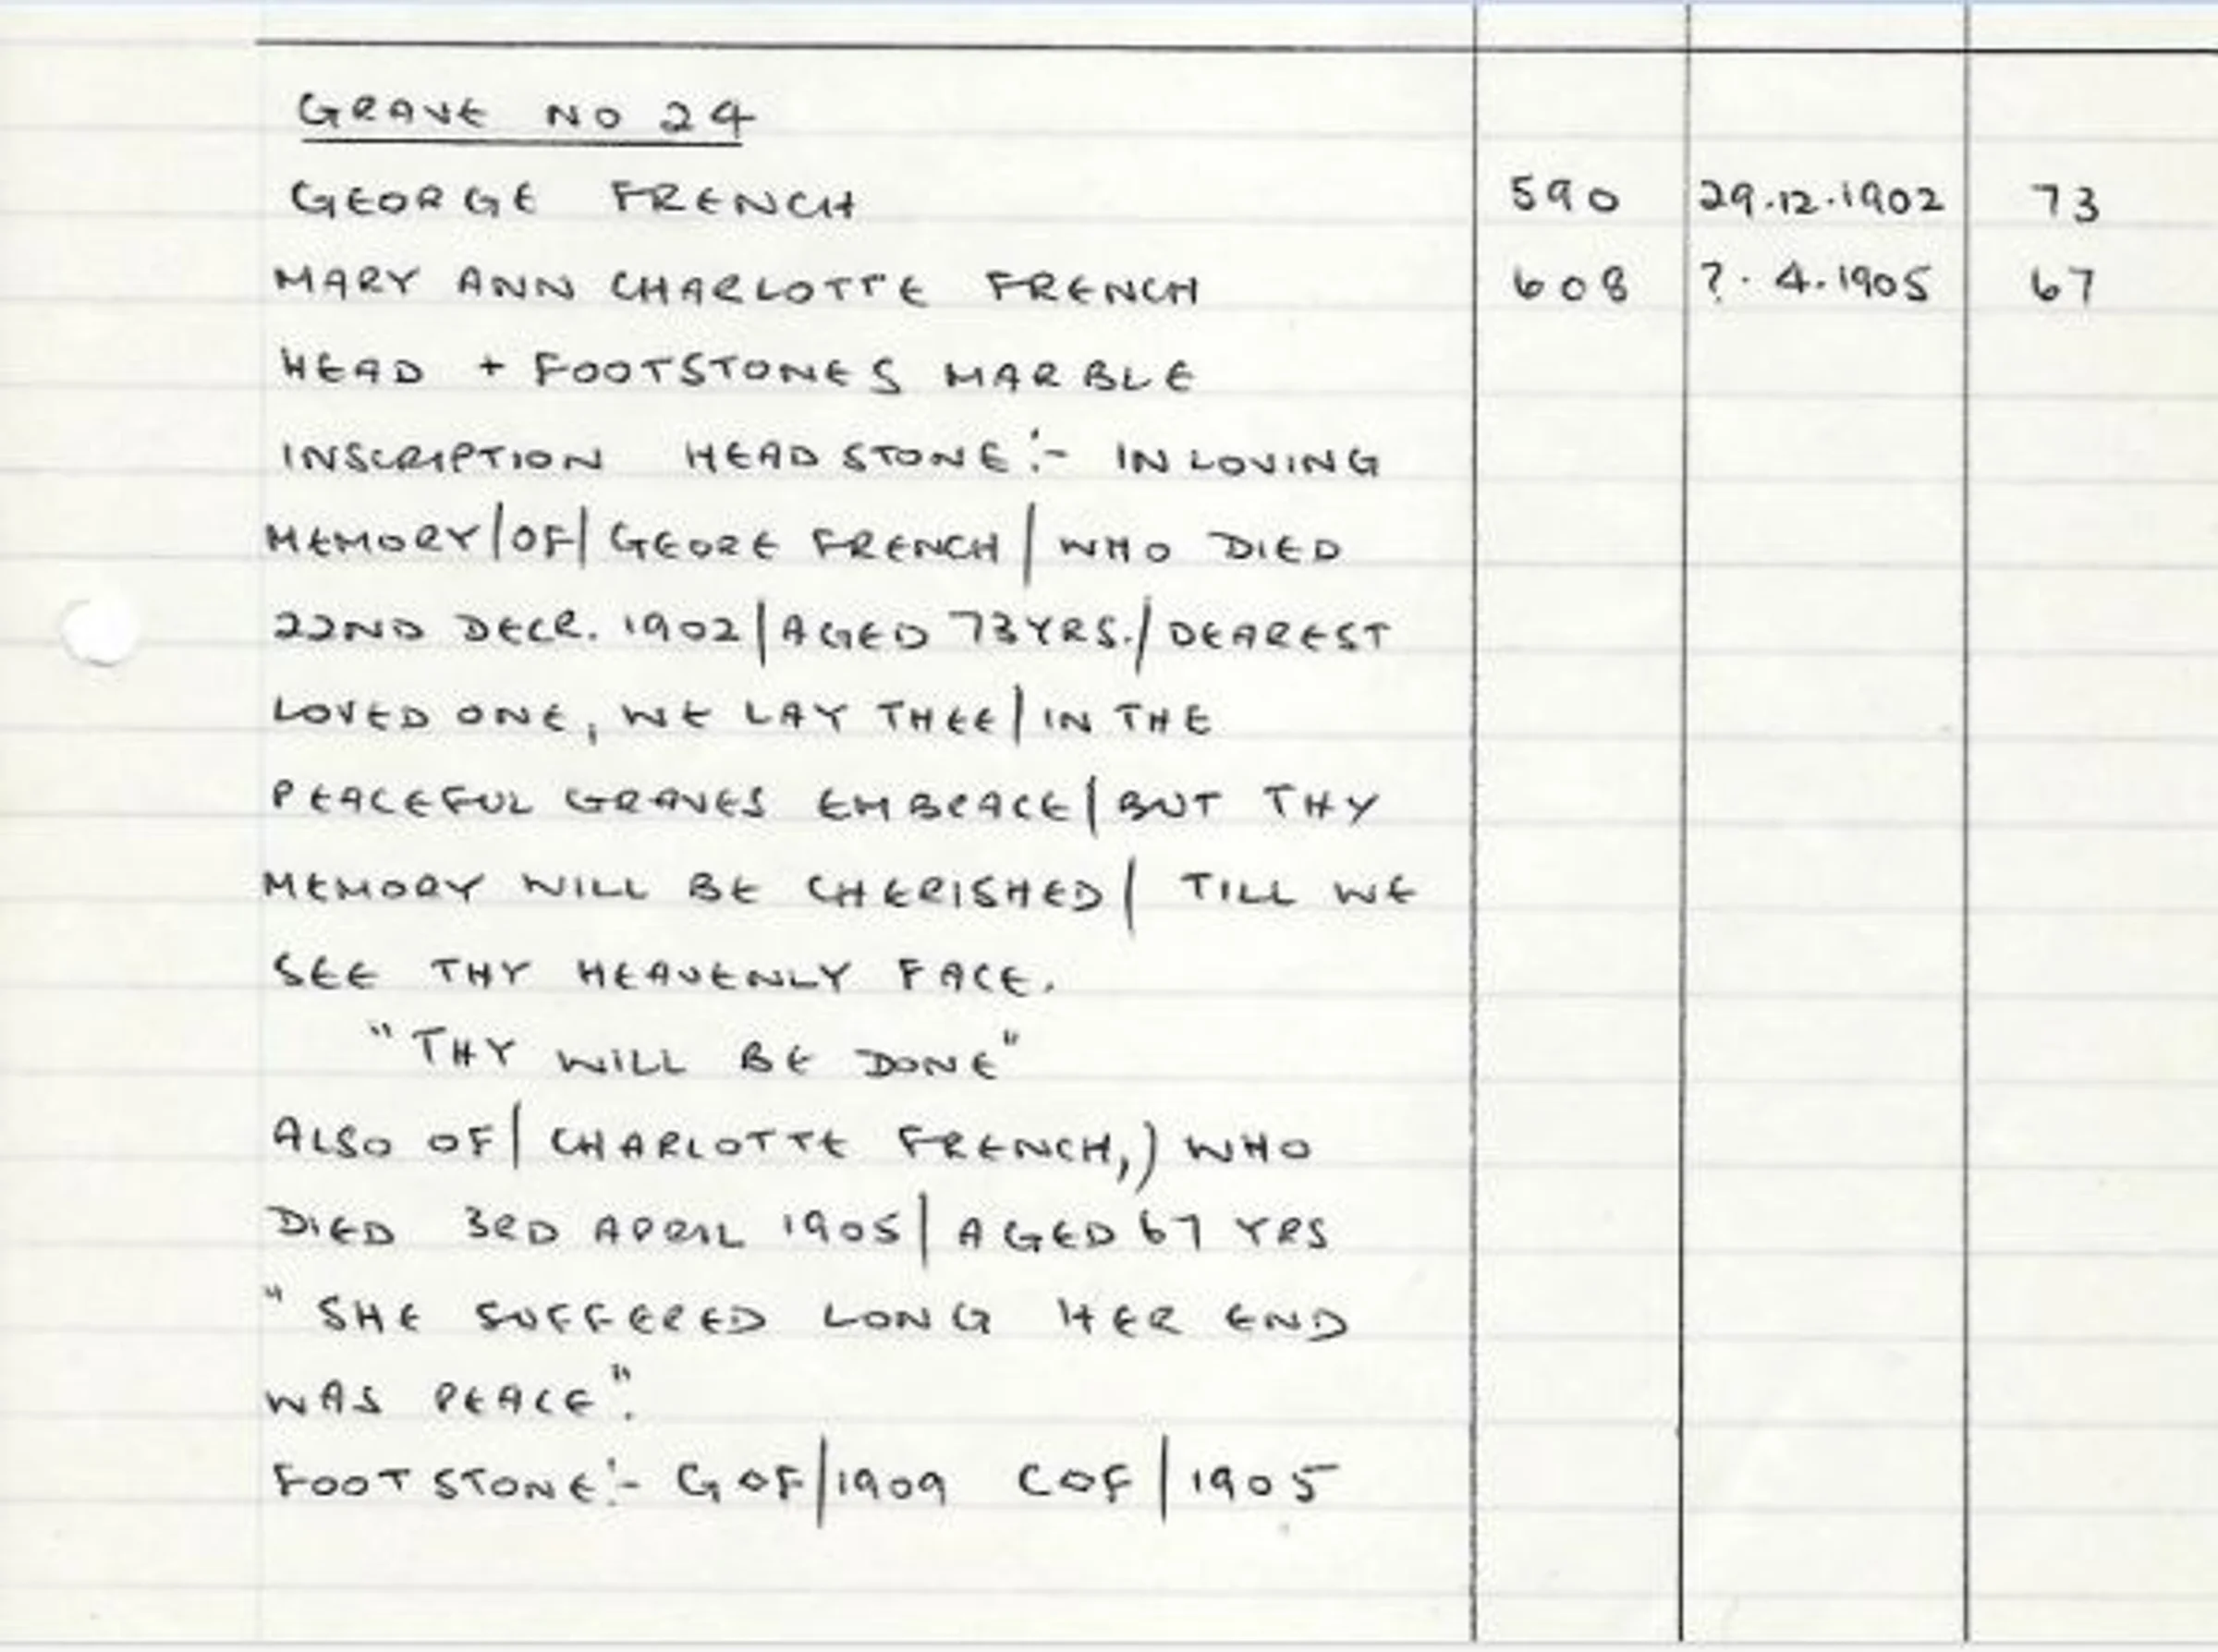 GRAVE NO 24
GEORGE FRENCH 590 29.12.1902 73
MARY ANN CHARLOTTE FRENCH 608 ?.4.1905 67
HEAD + FOOTSTONES MARBLE
INSCRIPTION HEADSTONE:- IN LOVING
MEMORY/OF/GEORE FRENCH/WHO DIED
22ND DECR. 1902/AGED 73YRS./DEAREST
LOVED ONE, WE LAY THEE/IN THE
PEACEFUL GRAVES EMBRACE/BUT THY
MEMORY WILL BE CHERISHED/TILL WE
SEE THY HEAVENLY FACE.
"THY WILL BE DONE"
ALSO OF/CHARLOTTE FRENCH,) WHO
DIED 3RD APRIL 1905/AGED 67 YRS
"SHE SUFFERED LONG HER END
WAS PEACE".
FOOTSTONE:- GOF/1909 COF/1905